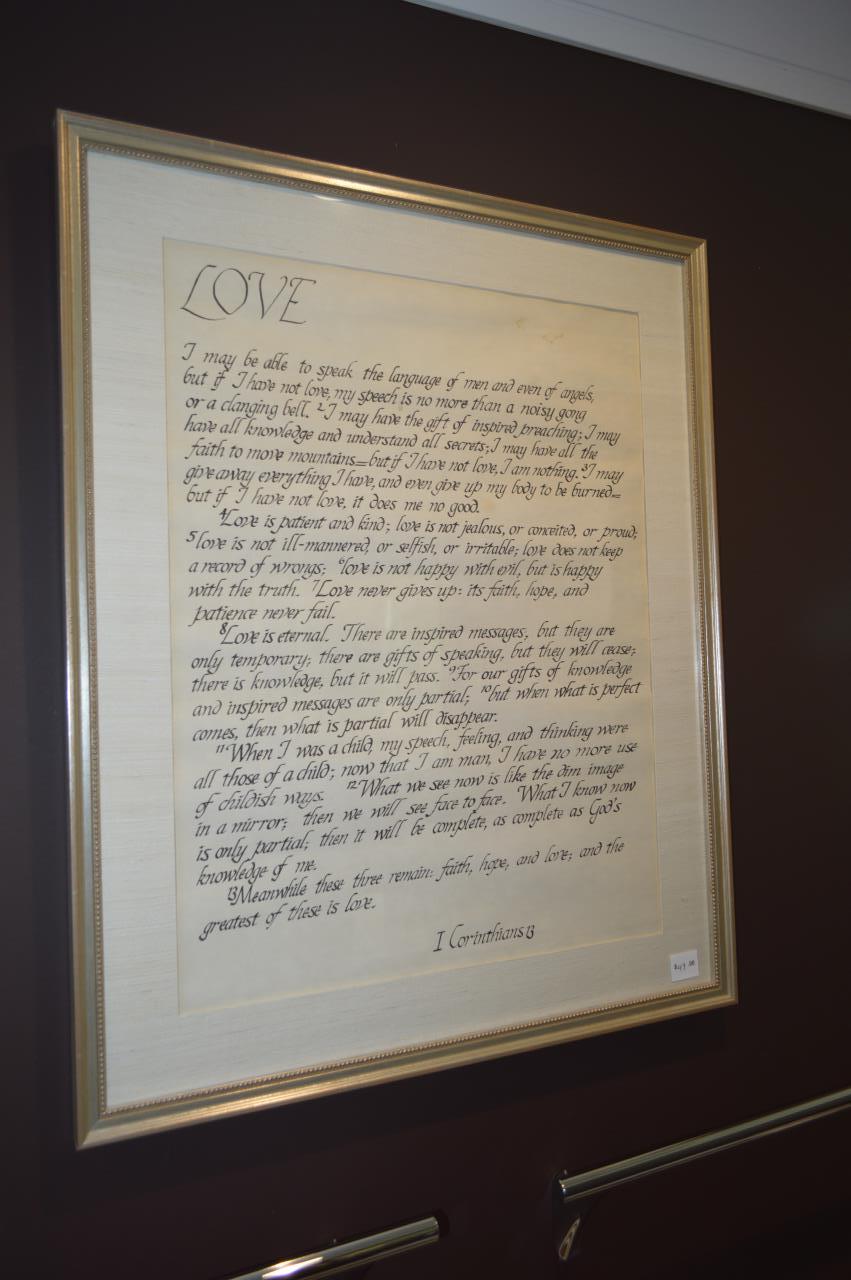 LOVE
I may be able to speak the language of men and even of angels,
but if I have not love, my speech is no more than a noisy gong
or a clanging bell. ²I may have the gift of inspired preaching; I may
have all knowledge and understand all secrets; I may have all the
faith to move mountains=but if I have not love, I am nothing. ³I may
give away everything I have, and even give up my body to be burned=
but if I have not love, it does me no good.
⁴Love is patient and kind; love is not jealous, or conceited, or proud;
⁵love is not ill-mannered, or selfish, or irritable; love does not keep
a record of wrongs; ⁶love is not happy with evil, but is happy
with the truth. ⁷Love never gives up: its faith, hope, and
patience never fail.
⁸Love is eternal. There are inspired messages, but they are
only temporary; there are gifts of speaking, but they will cease;
there is knowledge, but it will pass. ⁹For our gifts of knowledge
and inspired messages are only partial; ¹⁰but when what is perfect
comes, then what is partial will disappear.
¹¹When I was a child, my speech, feeling, and thinking were
all those of a child; now that I am man, I have no more use
of childish ways. ¹²What we see now is like the dim image
in a mirror; then we will see face to face. What I know now
is only partial; then it will be complete, as complete as God's
knowledge of me.
¹³Meanwhile these three remain: faith, hope, and love; and the
greatest of these is love.
I Corinthians 13